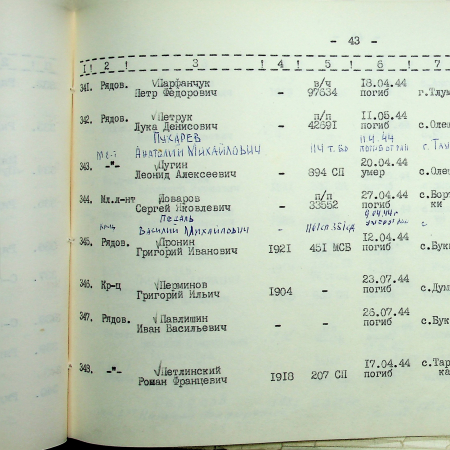 - 43 -
1 ! 2 ! 3 ! 4 ! 5 ! 6 ! 7
341. Рядов. Парфанчук - в/ч 18.04.44
Петр Федорович 97634 погиб г.Тлум
342. Рядов. Петрук - п/п 11.05.44
Лука Денисович 42691 погиб с.Олеш
Пухарев 11.4.44
Анатолий Михайлович
343. -"- Пугин 20.04.44
Леонид Алексеевич - 894 СП умер с.Олеш
344. Мл.л-нт Поваров п/п 27.04.44 с.Борт
Сергей Яковлевич - 33552 погиб ки
Печаль 9.04.44г
Василий Михайлович -
345. Рядов. Пронин 12.04.44
Григорий Иванович 1921 451 МСВ погиб с.Бук
346. Кр-ц Перминов 23.07.44
Григорий Ильич 1904 - погиб с.Дум
347. Рядов. Павлишин 26.07.44
Иван Васильевич - - погиб с.Бук
348. -"- Петлинский 17.04.44 с.Тар
Роман Францевич 1918 207 СП погиб ка